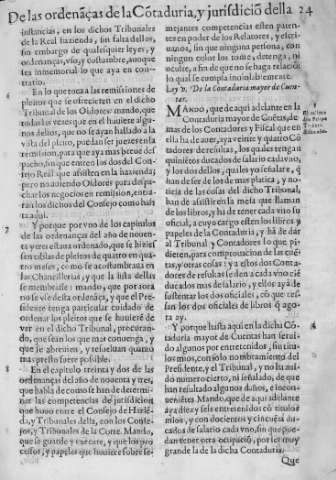 De las ordenãças de la Cõtaduria, y jurisdiciõ della 24
instancias, en los dichos Tribunales
de la Real hazienda, sin falta dellos,
sin embargo de qualesquier leyes, y
ordenanças, vso, y costumbre, aunque
sea inmemorial lo que aya en con-
trario.
En lo que toca a las remisiones de
pleitos que se ofrecieren en el dicho
Tribunal de los Oidores: mando, que
todas las vezes que en el huuiere algu-
nos dellos, que no se ayan hallado a la
vista del pleito, puedan ser jueces en la
remision, para que aya mas breue des-
pacho, sin que entren los dos del Con-
sejo Real que assisten en la hazienda;
pero no auiendo Oidor para despa-
char los negocios en remision, entra-
ran los dichos dos del Consejo como has
ta aqui.
7
Y porque por vno de los capitulos
de las ordenanças del año de nouen-
ta y tres estaua ordenado, que se hiziess-
sen salas de pleitos de quatro en qua-
tro meses, como se acostumbraua en
las Chancillerias, y que la lista dellas
se me embiasse: mando, que por aora
no se vse desta ordenãça, y que el Pre-
sidente tenga particular cuidado de
ordenar los pleitos que se huuieren de
ver en el dicho Tribunal, procuran-
do, que sean los que mas conuenga, y
que se abreuien, y resueluan quanto
mas presto fuere possible.
8
En el capitulo treinta y dos de las
ordenanças del año de nouenta y tres,
que habla de como se han de determi-
nar las competencias de jurisdicion
que huuo entre el Consejo de Hazien-
da, y Tribunales della, con los Conse-
jos, y Tribunales de la Corte. Mando,
que se guarde y execute, y que los pro-
cessos, y papeles que huuiere sobre se-
mejantes competencias esten paten-
tes en poder de los Relatores, y escri-
uanos, sin que ninguna persona, con
ningun color los pueda detener, ni
ocultar, a fin de que no se haga relaciõ:
lo qual se cumpla inuiolablemente.
Ley 9. De la Contaduria mayor de Cuen-
tas.
MANDO, que de aqui adelante en la
Contaduria mayor de Cuẽtas, de
mas de los Contadores y Fiscal que en
ella ha de auer, aya veinte y quatro Cõ-
tadores de resultas, los quales tengan
quinientos ducados de salario cada vno,
y los dos dellos, quales yo señalare, q̃
han de ser de los de mas platica, y no-
ticia de las cosas del dicho Tribunal,
han de assistir en la mesa que llaman
de los libros, y ha de tener cada vno su
oficial, a cuyo cargo esten los libros y
papeles de la Contaduria, y ha de dar
al Tribunal y Contadores lo que pi-
dieren, para comprouacion de las cuẽ-
tas, y otras cosas: y a estos dos Conta-
dores de resultas se den a cada vno ciẽ
ducados mas de salario, y ellos ayã de
sustentar los dos oficiales, cõ que ces-
sen los dos oficiales de libros q̃ ago-
ra ay.
4
Y porque hasta aqui en la dicha Cõ-
taduria mayor de Cuentas han serui-
do algunos por entretenidos, sin titu-
los mios, con solo nombramiento del
Presidente, y el Tribunal, y no ha aui-
do numero cierto, ni señalado, de que
han resultado algunos daños, e incon-
uenientes. Mando, que de aqui adelante
aya diez y seis entretenidos con titulos
mios, y con docientos y cincuẽta du-
cados de salario cada vno, sin que pue-
dan tener otra ocupaciõ, por ler muy
grande la de la dicha Contaduria.
Que